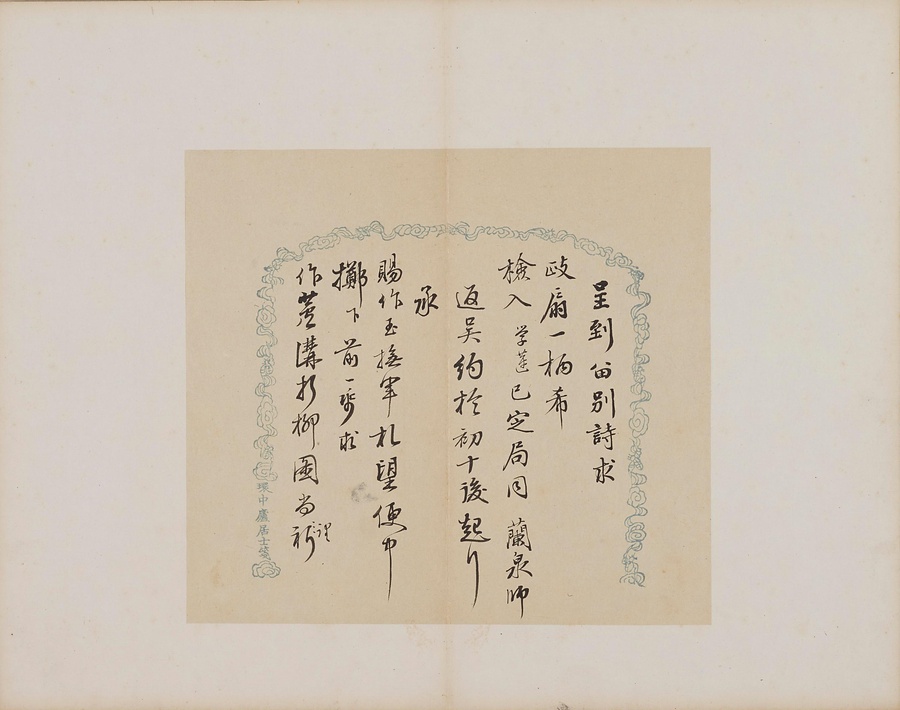 呈到留別詩求
政扇一柄希
檢入学蓮已定局同蘭泉師
返吴約於初十後起行
承
賜作玉撫軍札望便中
擲下前一乘求
作蘆溝折柳圖尚祈
環中廬居士箋